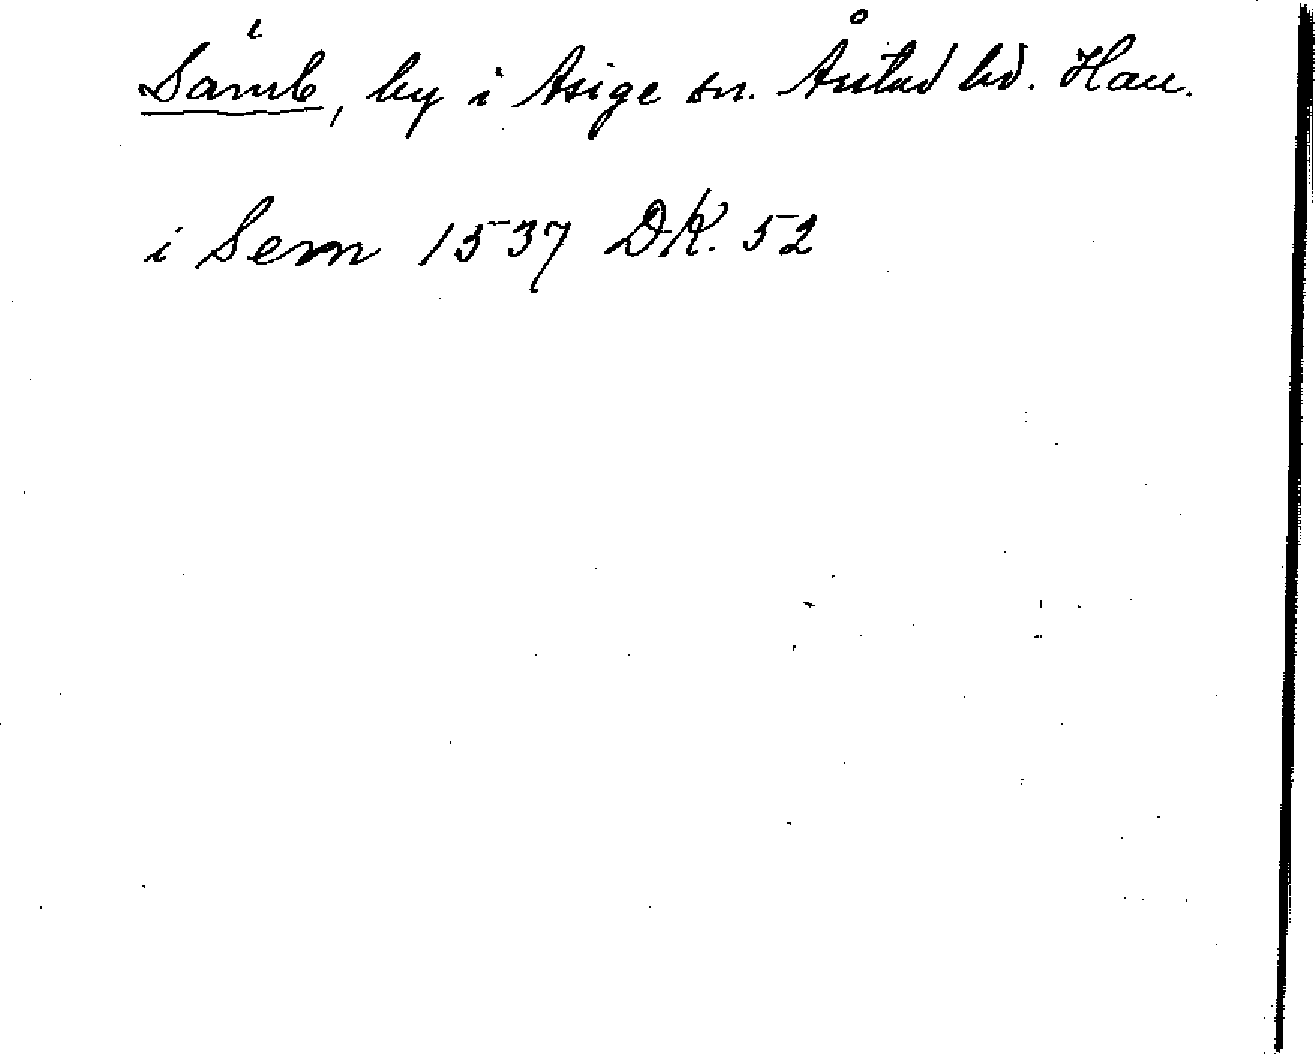 Sämb, by i Asige sn. Årstad hd. Hall.
i Sem 1537 DK. 52